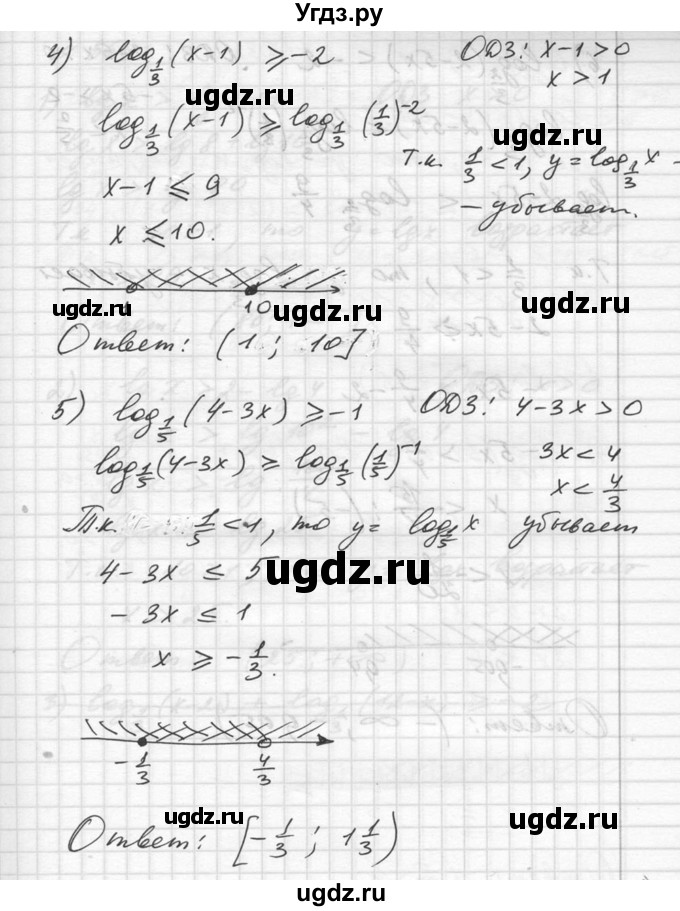 Угдз.ру
4) log_{1/3}(x-1) ≥ -2 ОДЗ: x-1>0
x>1
ugdz.ru
log_{1/3}(x-1) ≥ log_{1/3}(1/3)^{-2}
ugdz.ru ugdz.ru
Т.к. 1/3<1, y=log_{1/3}x -
- убывает.
x-1 ≤ 9
x ≤ 10.
ugdz.ru
1 10
ugdz.ru ugdz.ru ugdz.ru
Ответ: (1 ; 10]
5) log_{1/5}(4-3x) ≥ -1 ОДЗ: 4-3x>0
log_{1/5}(4-3x) ≥ log_{1/5}(1/5)^{-1} 3x<4
x<4/3
Т.к. 1/5<1, то y= log_{1/5}x убывает
4-3x ≤ 5
ugdz.ru
-3x ≤ 1
x ≥ -1/3.
-1/3 4/3
ugdz.ru ugdz.ru
Ответ: [-1/3 ; 1 1/3)
ugdz.ru ugdz.ru